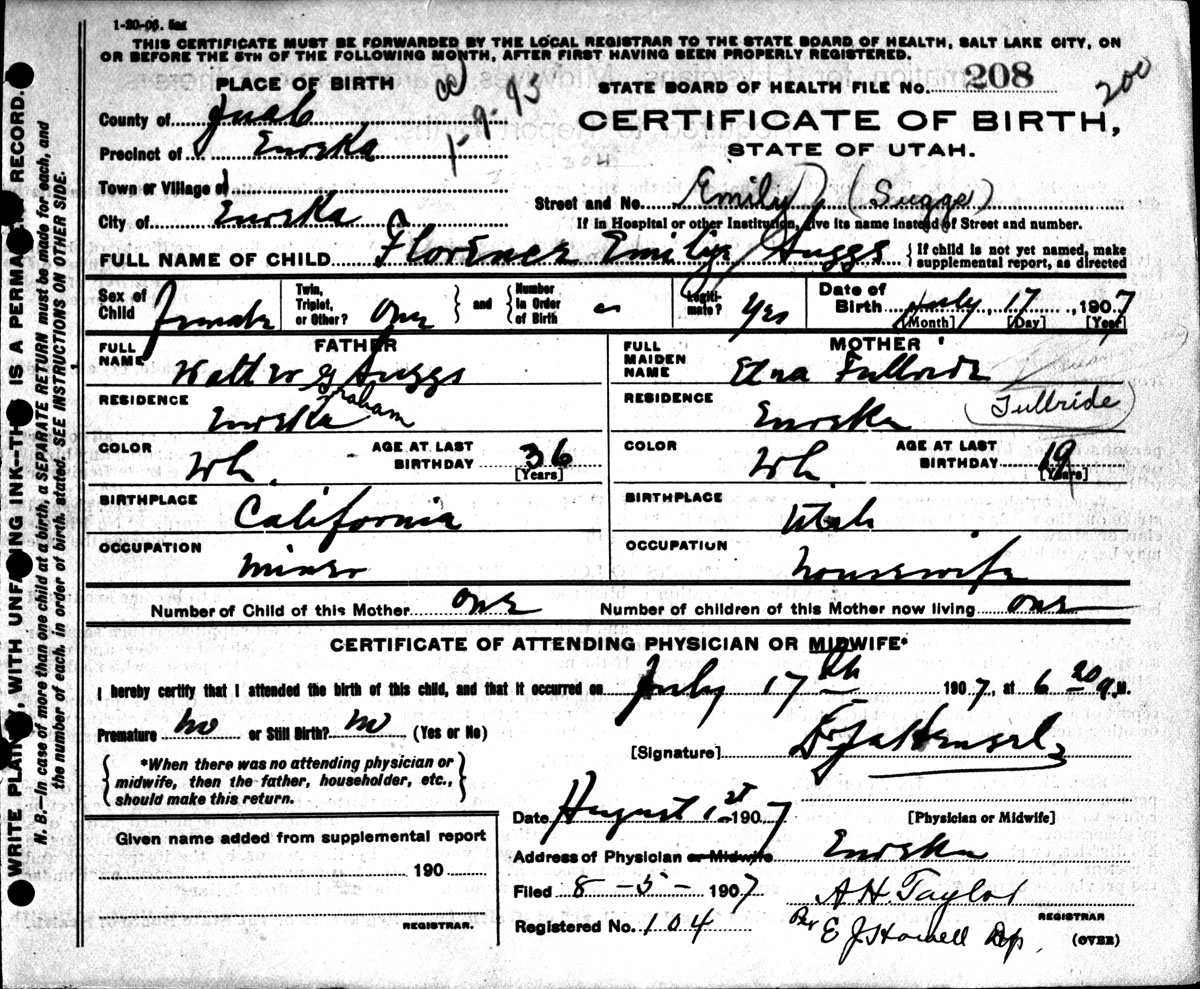 1-20-06. 5M
THIS CERTIFICATE MUST BE FORWARDED BY THE LOCAL REGISTRAR TO THE STATE BOARD OF HEALTH, SALT LAKE CITY, ON
OR BEFORE THE 5TH OF THE FOLLOWING MONTH, AFTER FIRST HAVING BEEN PROPERLY REGISTERED.
PLACE OF BIRTH
1-9-43
STATE BOARD OF HEALTH FILE No. 208
200
County of Juab
CERTIFICATE OF BIRTH,
Precinct of Eureka
STATE OF UTAH.
Town or Village of
Street and No. Emily (Suggs)
City of Eureka
If in Hospital or other Institution, give its name instead of Street and number.
FULL NAME OF CHILD Florence Emily Suggs {If child is not yet named, make supplemental report, as directed
Sex of Child Female
Twin, Triplet, or Other? One } and { Number in Order of Birth
Legitimate? Yes
Date of Birth July, 17, 1907
[Month] [Day] [Year]
FATHER
FULL NAME Walter G Suggs
Graham
RESIDENCE Eureka
COLOR Wh.
AGE AT LAST BIRTHDAY 36
[Years]
BIRTHPLACE California
OCCUPATION miner
MOTHER
FULL MAIDEN NAME Etna Fullride
(Fullbride)
RESIDENCE Eureka
COLOR Wh.
AGE AT LAST BIRTHDAY 19
[Years]
BIRTHPLACE Utah
OCCUPATION housewife
Number of Child of this Mother one Number of children of this Mother now living one
CERTIFICATE OF ATTENDING PHYSICIAN OR MIDWIFE*
I hereby certify that I attended the birth of this child, and that it occurred on July 17th 1907, at 6 20 a M.
Premature No or Still Birth? No (Yes or No)
[Signature] Dr J A Hensel
*When there was no attending physician or
midwife, then the father, householder, etc.,
should make this return.
Date August 1st 1907
[Physician or Midwife]
Address of Physician or Midwife Eureka
Filed 8-5- 1907
A H. Taylor
REGISTRAR
Registered No. 104
Per E J Howell Dep.
(OVER)
Given name added from supplemental report
190
REGISTRAR.
WRITE PLAINLY, WITH UNFADING INK—THIS IS A PERMANENT RECORD.
N. B.—In case of more than one child at a birth, a SEPARATE RETURN must be made for each, and
the number of each, in order of birth, stated. SEE INSTRUCTIONS ON OTHER SIDE.